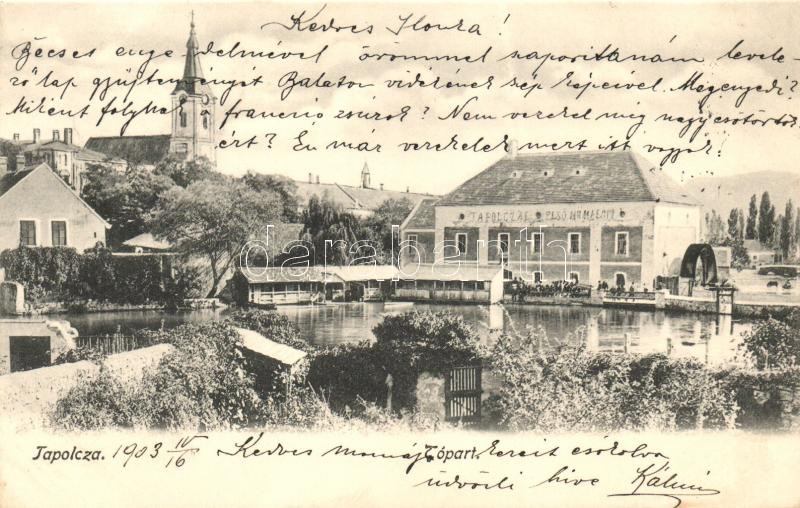 Kedves Ilonka!
Becses engedelmével örömmel szaporítanám levele-
ző lap gyűjteményét Balaton vidékének szép képeivel. Megengedi?
Miként folynak a francia zsúrok? Nem verekel míg nagycsötörtök-
ért? Én már verekelek mert itt vagyok.
TAPOLCZAI ELSŐ MŰMALOM
darabanth
Tapolcza. 1903 IV/16 Kedves mamája kezeit csókolva
Tópart.
üdvözli híve Kálmán